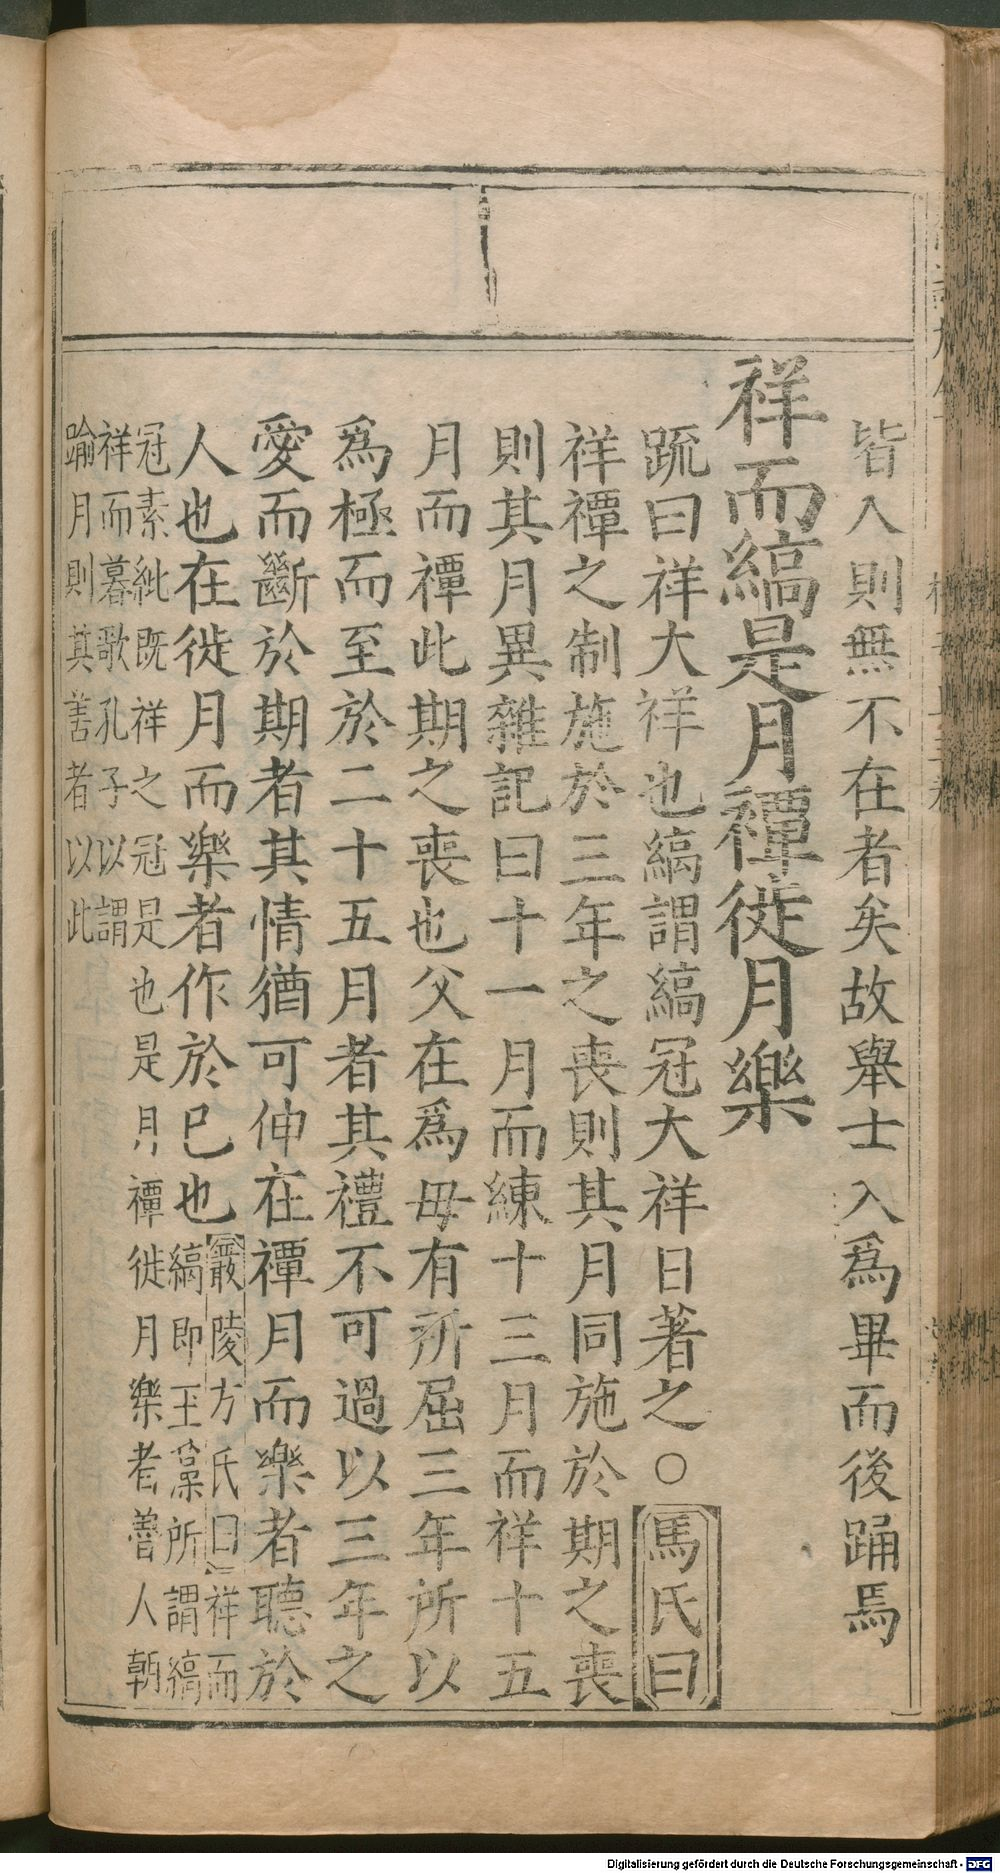 皆入則無不在者矣故舉士入爲畢而後踊焉
祥而縞是月禫徙月樂
疏曰祥大祥也縞謂縞冠大祥日著之○馬氏曰
祥禫之制施於三年之喪則其月同施於期之喪
則其月異雜記曰十一月而練十三月而祥十五
月而禫此期之喪也父在爲毋有所屈三年所以
爲極而至於二十五月者其禮不可過以三年之
愛而斷於期者其情猶可伸在禫月而樂者聽於
人也在徙月而樂者作於已也
嚴陵方氏曰祥而
縞即玉藻所謂縞
冠素紕既祥之冠是也是月禫徙月樂者魯人朝
祥而暮歌孔子以謂
踰月則其善者以此
Digitalisierung gefördert durch die Deutsche Forschungsgemeinschaft - DFG